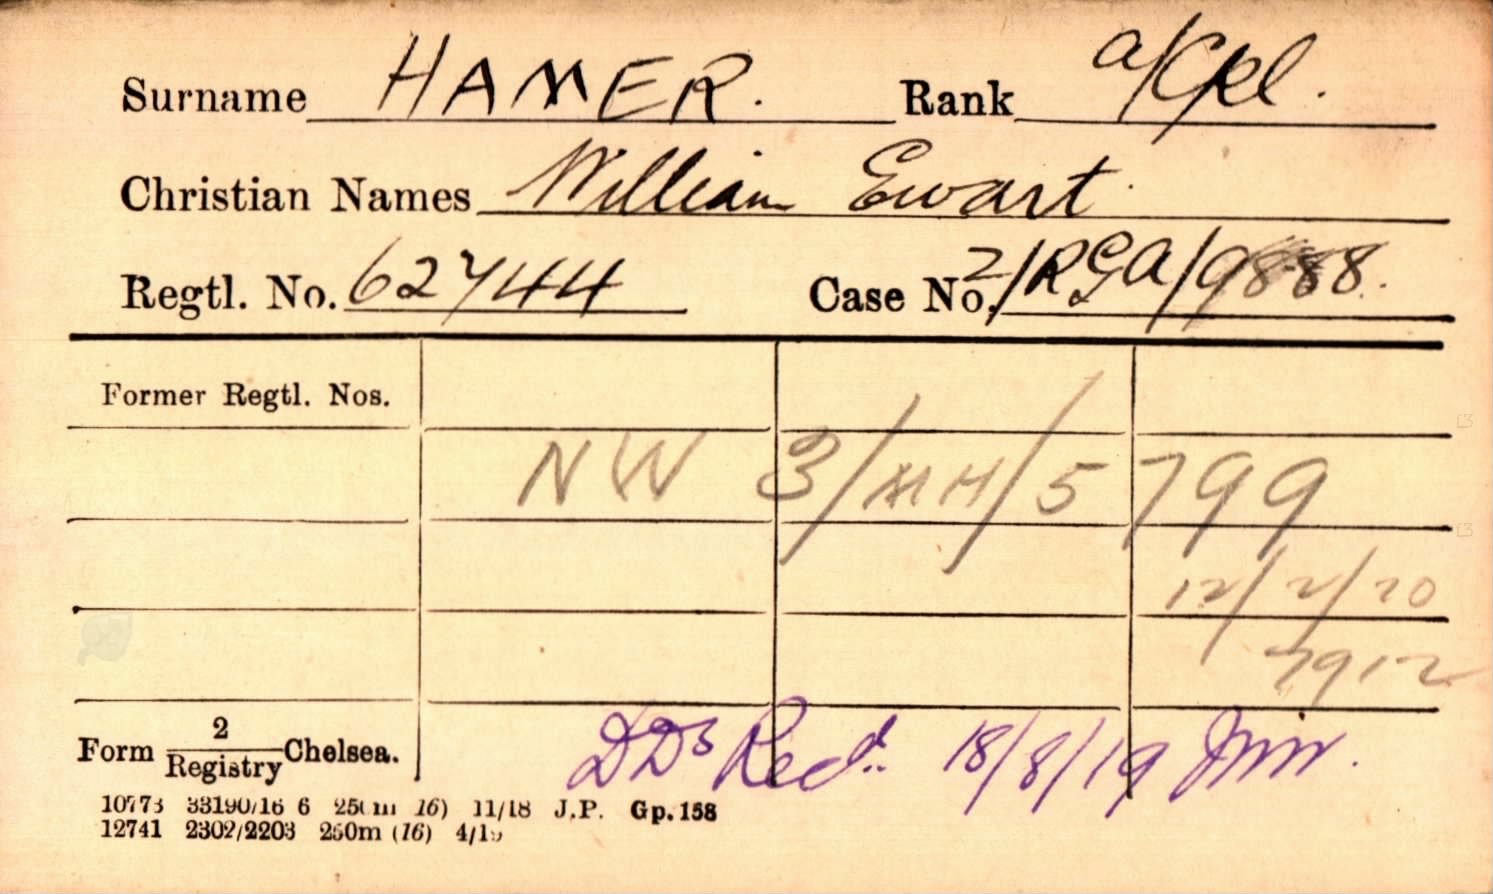 Surname HAMER. Rank a/Cpl.
Christian Names William Ewart.
Regtl. No. 62744 Case No. 2/RGA/9888.
Former Regtl. Nos.
NW 3/MH/5799
12/2/20
7912
Form 2/Registry Chelsea. DD3 Recd. 18/8/19
10773 33190/16 6 250m 16) 11/18 J.P. Gp. 158
12741 2302/2203 250m (16) 4/19